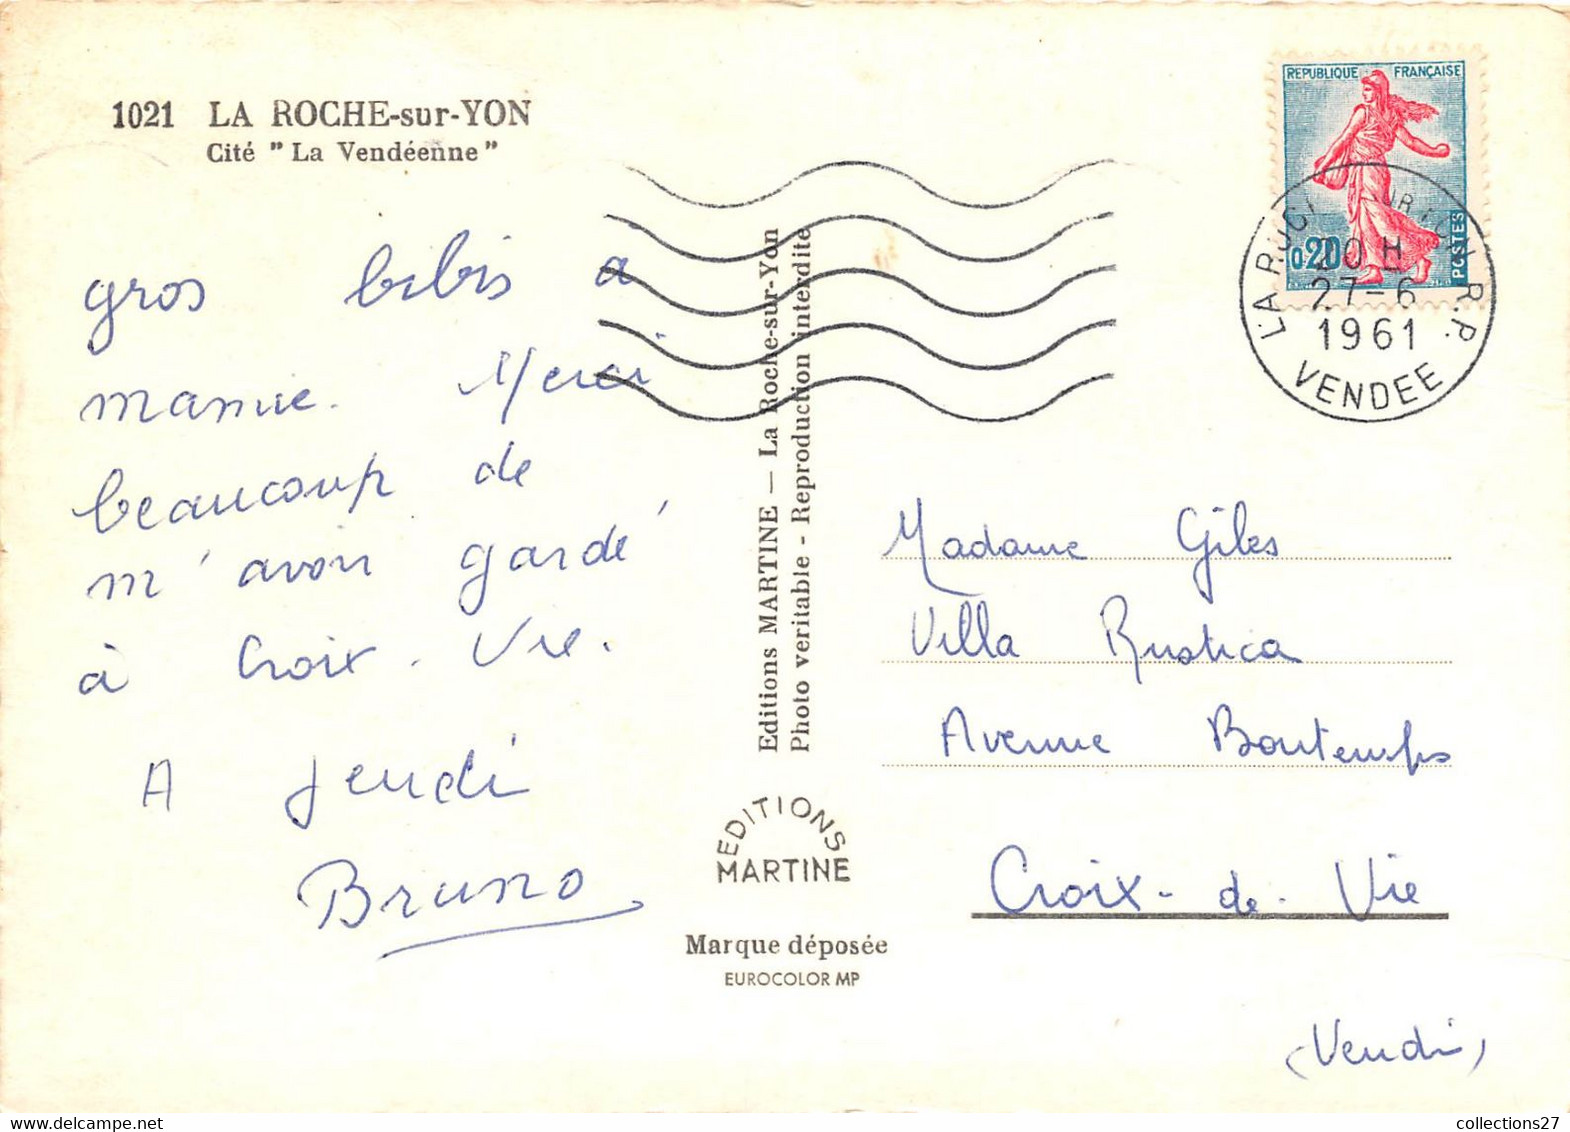 1021 LA ROCHE-sur-YON
Cité " La Vendéenne "
gros bibis a
mamie. Merci
beaucoup de
m'avoir gardé
à Croix. Vie.
A jeudi
Bruno
Editions MARTINE — La Roche-sur-Yon
Photo veritable - Reproduction interdite
EDITIONS
MARTINE
Marque déposée
EUROCOLOR MP
REPUBLIQUE FRANÇAISE
0,20
POSTES
20 H
27-6
1961
VENDEE
Madame Giles
Villa Rustica
Avenue Bontemps
Croix-de-Vie
(Vendée)
collections27